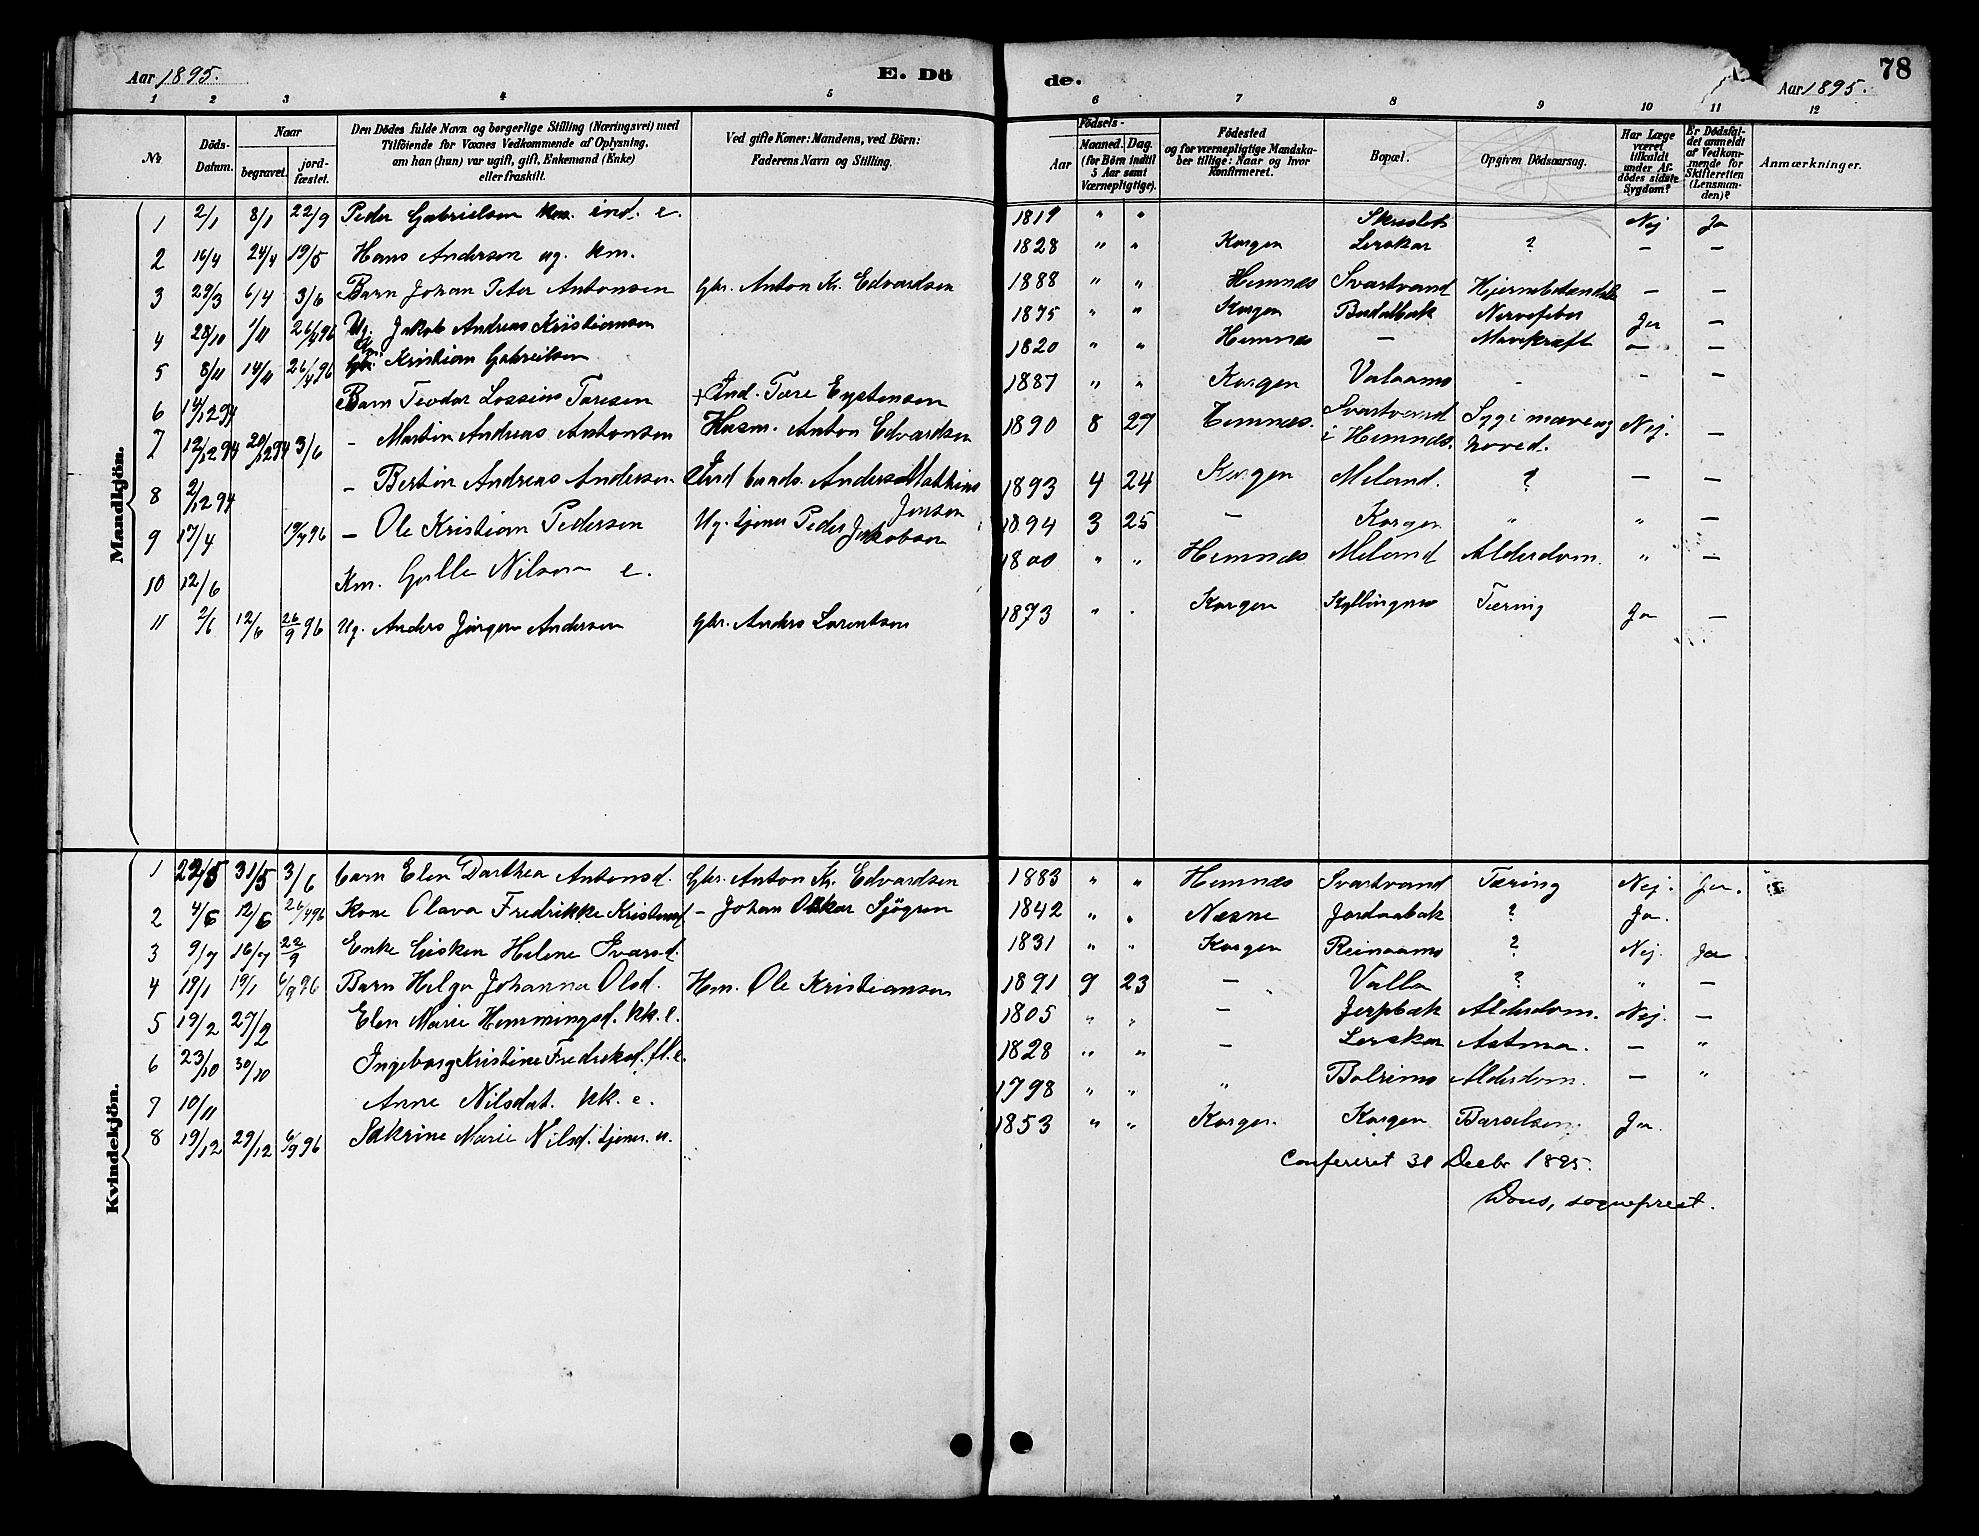 Aar 1895. E. Dö de. Aar 1895. 78
1 2 3 4 5 6 7 8 9 10 11 12
No. Döds-Datum. Naar begravet. jord-fæstet. Den Dödes fulde Navn og borgerlige Stilling (Næringsvei) med Tilföiende for Voxnes Vedkommende af Oplysning, om han (hun) var ugift, gift, Enkemand (Enke) eller fraskilt. Ved gifte Koner: Mandens, ved Börn: Faderens Navn og Stilling. Födsels- Aar Maaned. Dag. (for Börn indtil 5 Aar samt Værnepligtige). Födested og for værnepligtige Mandskaber tillige: Naar og hvor Konfirmeret. Bopæl. Opgiven Dödsaarsag. Har Læge været tilkaldt under Afdödes sidste Sygdom? Er Dödsfaldet anmeldt af Vedkommende for Skifteretten (Lensmanden)? Anmærkninger.
Mandkjön.
1 2/1 8/1 22/9 Peder Gabrielsen ind. e. 1819 " " Nej Ja
2 16/4 24/4 19/5 Hans Andersen ug. km. 1828 " " Korgen Lerskar ? — —
3 29/3 6/4 3/6 Barn Johan Peter Antonsen Gbr. Anton Kr. Edvardsen 1888 " " Hemnæs Svartvand — —
4 28/10 1/11 26/4 96 Ug. Jakob Andreas Kristiansen 1875 " " Korgen Nervefeber Ja —
5 8/11 14/11 26/4 96 Kristian Gabrielsen 1820 " " Hemnæs — Mavekræft — —
6 14/12 94 Barn Teodor Toresen + Ind. Tore Eystensen 1887 " " Korgen - - —
7 12/12 94 20/12 94 3/6 - Martin Andreas Antonsen Husm. Anton Edvardsen 1890 8 27 Hemnæs. Svartvand i Hemnæs. Syg i mave og hoved. Nej. —
8 2/12 94 - Bertin Andreas Andersen Ind. Anders Mathias Jensen 1893 4 24 Korgen Meland. ? — —
9 17/4 19/4 96 — Ole Kristian Pedersen Ug. tjener Peder Jakobsen 1894 3 25 — Korgen " " —
10 12/6 Km. Gulle Nilsen e. 1800 " " Hemnæs Meland Alderdom. " —
11 2/6 12/6 26/9 96 Ug. Anders Jørgen Andersen Gbr. Anders Lorentsen 1873 " . Korgen Kyllingmo Tæring Ja —
Kvindekjön.
1 22/5 31/5 3/6 barn Elen Darthea Antonsd. Gbr. Anton Kr. Edvardsen 1883 " " Hemnæs Svartvand Tæring Nej. Ja.
2 4/6 12/6 26/4 96 Kone Olava Fredrikke Kristensd - Johan Oskar Sjögren 1842 " " Næsne Jordaabæk ? Ja.
3 9/7 16/7 22/9 Enke Helene Ivarsd. 1831 " " Korgen Reinaamo ? Nej. Ja
4 19/1 19/1 6/9 96 Barn Helga Johanna Olsd. Hm. Ole Kristiansen 1891 9 23 — Valla ? " —
5 19/2 27/2 Elen Marie Hemmingsd. kk. e. 1805 " " — Jerpbæk Alderdom. Nej. —
6 23/10 30/10 Ingeborg Kristine Fredriksd. fl. e. 1828 " " — Lerskar Astma. — "
7 10/11 Anne Nilsdat. kk. e. 1798 " " " Bolrimo Alderdom. — "
8 19/12 29/12 6/9 96 Sakrine Marie Nilsd. tjener. u. 1853 " " Korgen. Korgen Barselseng. Ja.
Confereret 31 Decbr 1895.
sogneprest.